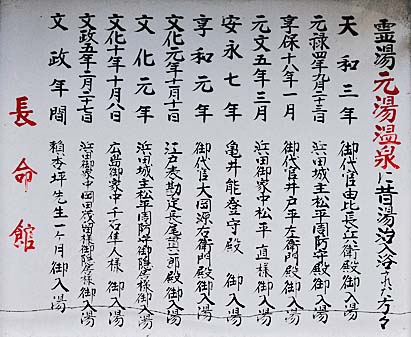 霊湯元湯温泉に昔湯治入浴された方々
天和三年 御代官由比長兵衛殿御入湯
元禄四年九月二十三日 浜田城主松平周防守御隠居様御入湯
享保十八年一月 御代官井戸平左衛門殿御入湯
元文五年三月 浜田御家中松平直様御入湯
安永七年 亀井能登守殿御入湯
享和元年 御代官大岡源右衛門殿御入湯
文化元年十月十一日 江戸表勘定長尾 殿御入湯
文化元年 浜田城主松平周防守御隠居様御入湯
文化十年十月八日 広島御家中千石隼人様御入湯
文政五年二月二十日 浜田御家中岡田茂留様御隠居様御入湯
文政年間 頼杏坪先生一ヶ月御入湯
長命館